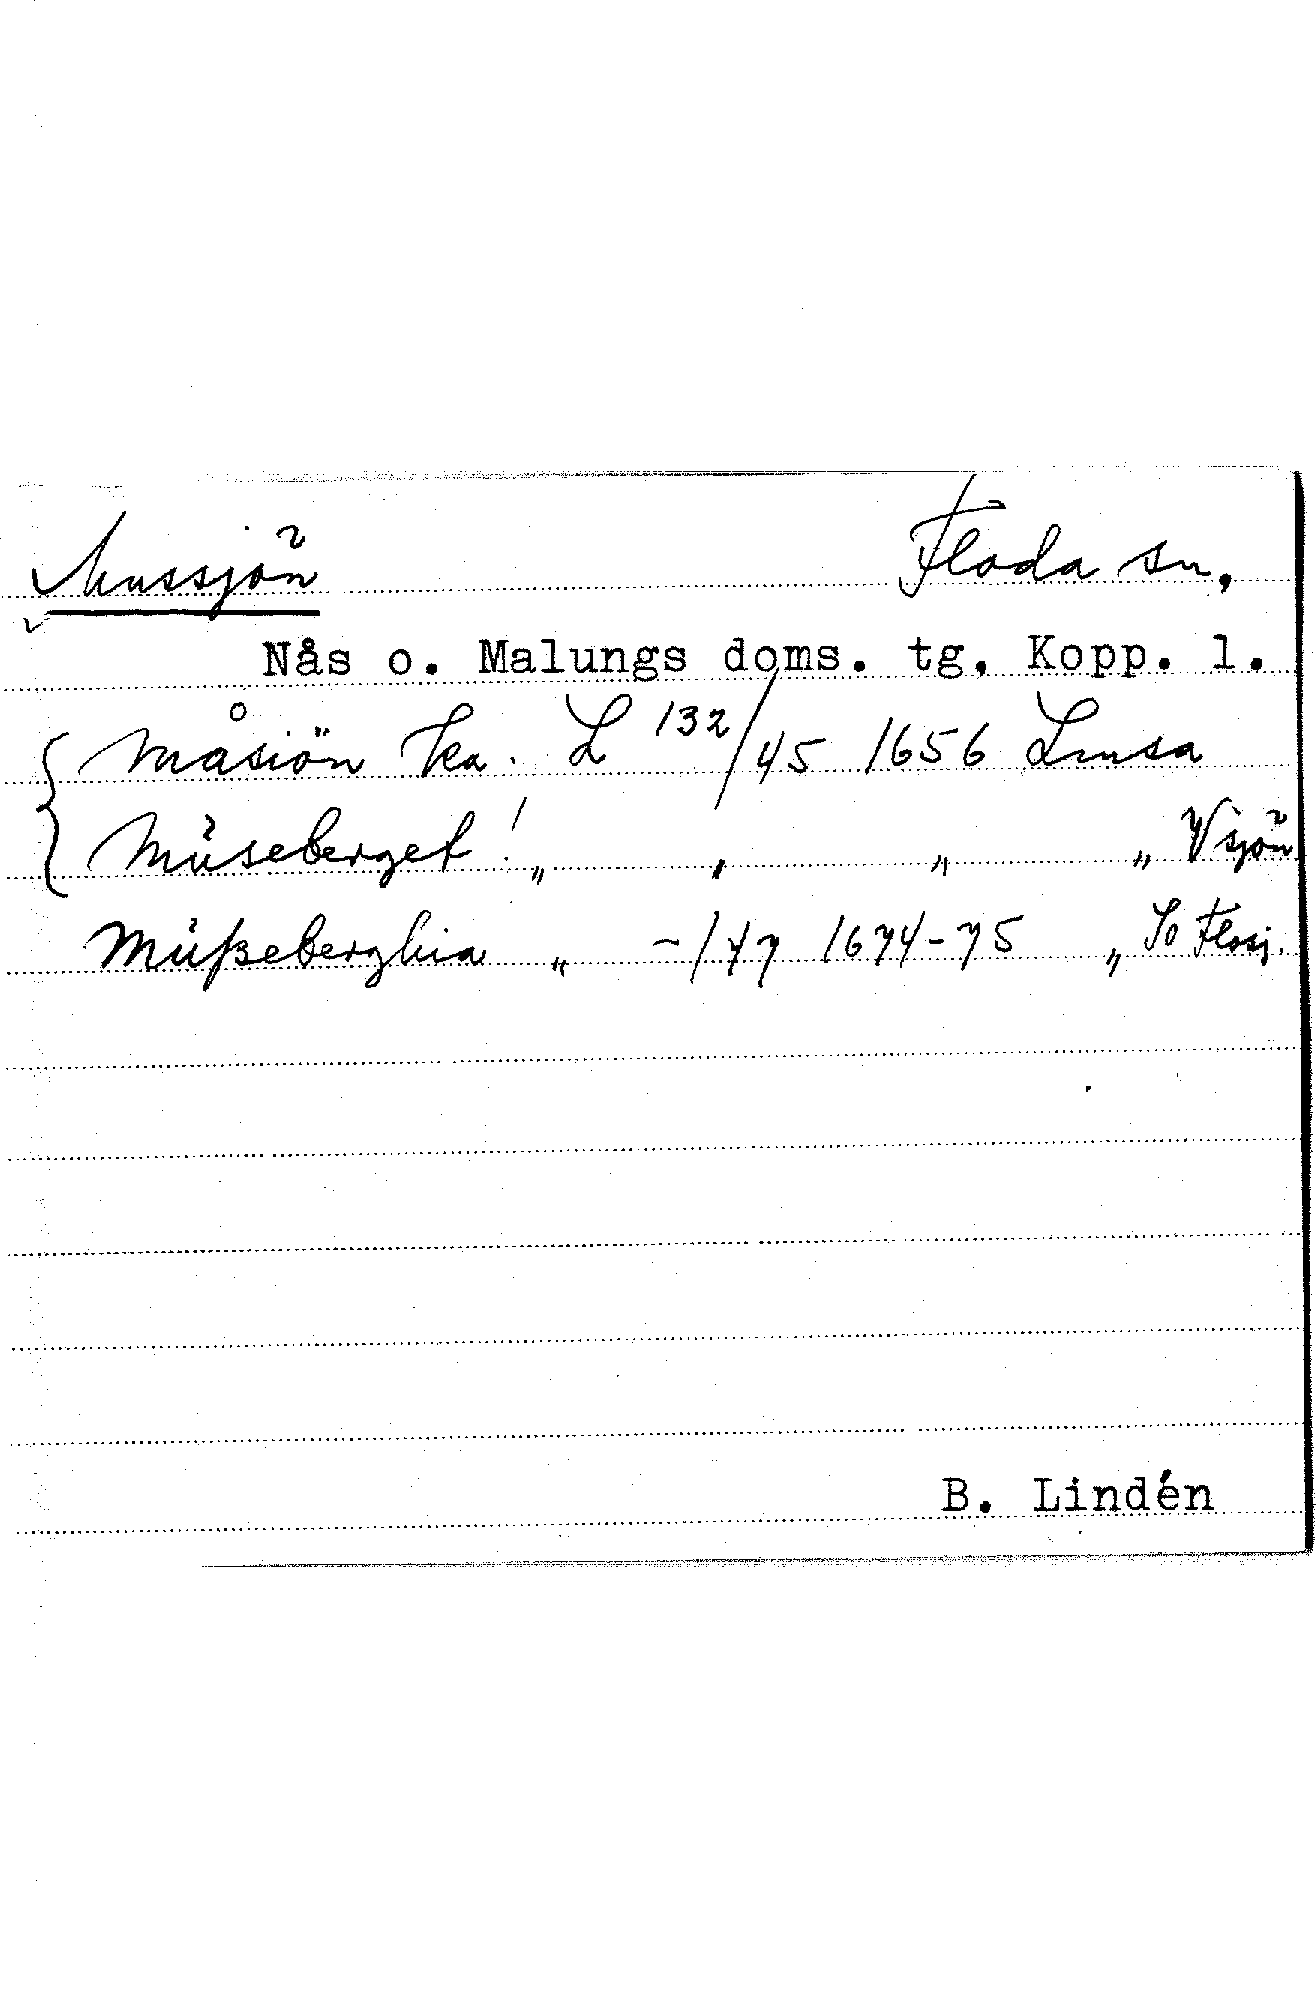 Mussjön Floda sn.
Nås o. Malungs doms. tg. Kopp. l.
Måsiön ka. L 132/45 1656 Lmsa
Müseberget! „ „ „ „ V sjön
Müßeberghia „ -/47 1674-75 „ So Flosj.
B. Lindén